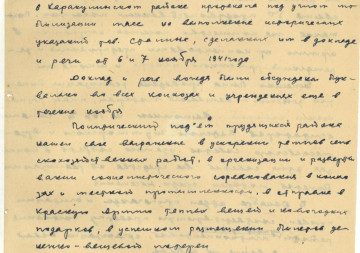 в Карагулинском районе прошла под знаком мо-
билизации масс на выполнение исторических
указаний тов. Сталина, сделанных им в докладе
и речи от 6 и 7 ноября 1941 года
Доклад и речь вождя были обсуждены бук-
вально во всех колхозах и учреждениях еще в
течение ноября
Политический под'ем трудящихся района
нашел свое выражение в ускорении темпов сель-
скохозяйственных работ, в организации и развер-
вании социалистического соревнования в колхо-
зах и местной промышленности, в отправке в
Красную Армию теплых вещей и новогодних
подарков, в успешном размещении билетов де-
нежно-вещевой лотереи